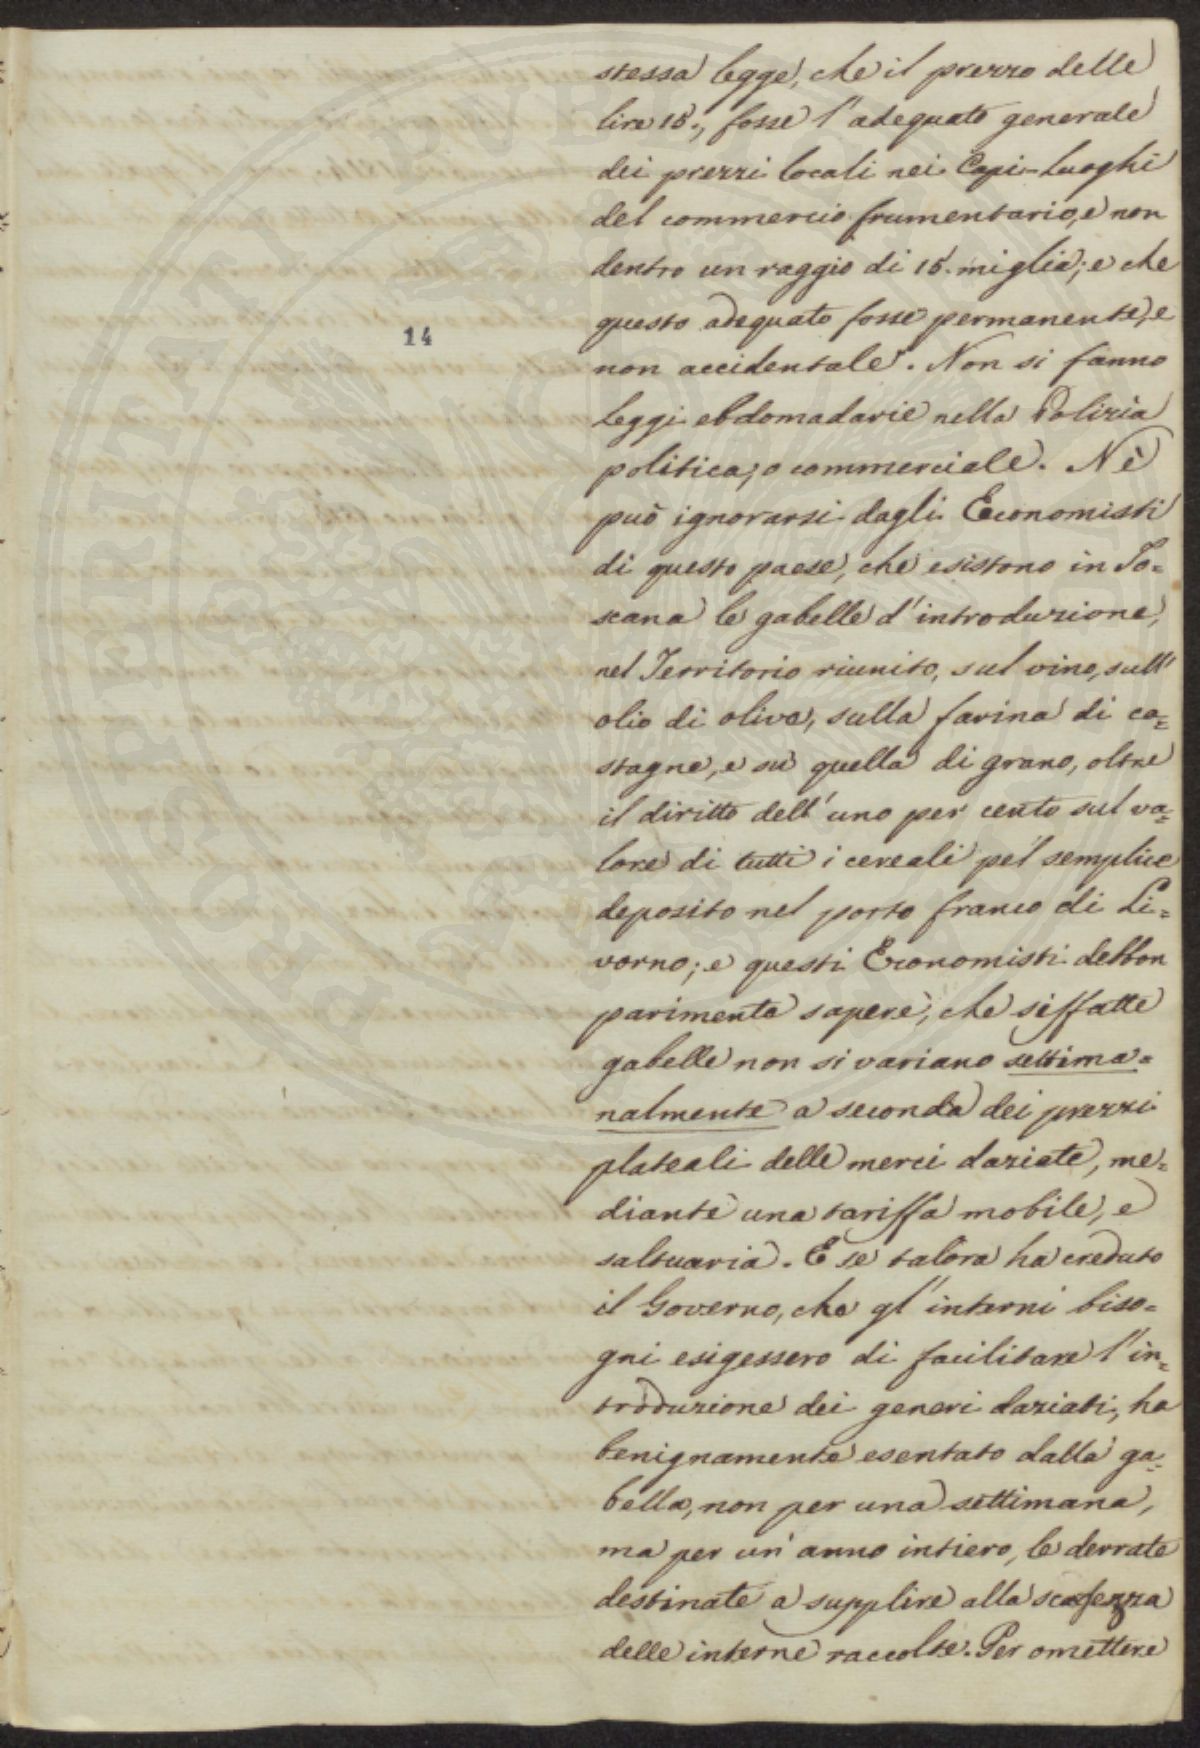 stessa legge, che il prezzo delle
lire 18., fosse l'adeguato generale
dei prezzi locali nei Capi-luoghi
del commercio frumentario, e non
dentro un raggio di 15. miglia; e che
questo adequato fosse permanente, e
14
non accidentale. Non si fanno
leggi ebdomadarie nella Polizia
politica, o commerciale. Nè
può ignorarsi dagli Economisti
di questo paese, che esistono in To=
scana le gabelle d'introduzione,
nel Territorio riunito, sul vino, sull'
olio di oliva, sulla farina di ca=
stagne, e su quella di grano, oltre
il diritto dell'uno per cento sul va=
lore di tutti i cereali pel semplice
deposito nel porto franco di Li=
vorno; e questi Economisti debbon
parimente sapere, che siffatte
gabelle non si variano settima=
nalmente a seconda dei prezzi
plateali delle merci daziate, me=
diante una tariffa mobile, e
saltuaria. E se talora ha creduto
il Governo, che gl'interni biso=
gni esigessero di facilitare l'in=
troduzione dei generi daziati, ha
benignamente esentato dalla ga=
bella, non per una settimana,
ma per un'anno intiero, le derrate
destinate a supplire alla scarsezza
delle interne raccolte. Per omettere
PROSPERITATI PUBLICAE